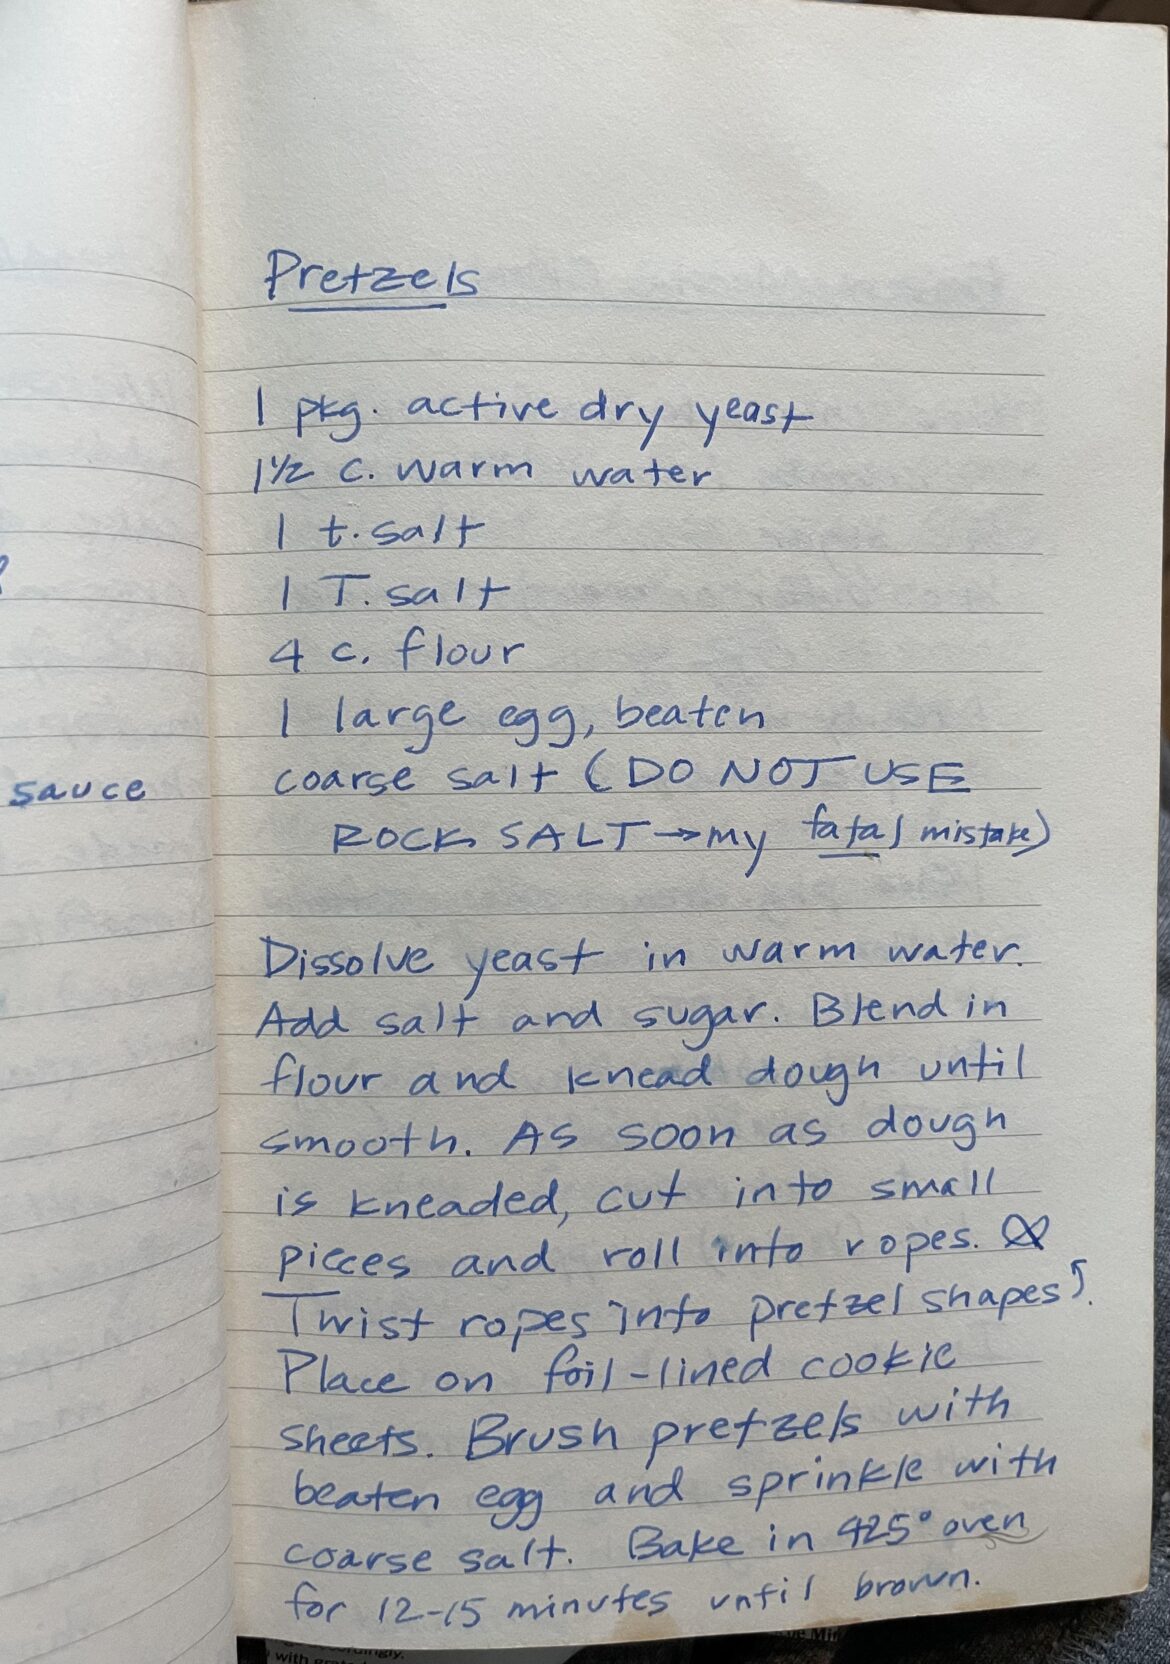 Pretzels
1 pkg. active dry yeast
1½ c. warm water
1 t. salt
1 T. salt
4 c. flour
1 large egg, beaten
coarse salt (DO NOT USE
ROCK SALT → my fatal mistake)
Dissolve yeast in warm water.
Add salt and sugar. Blend in
flour and knead dough until
smooth. As soon as dough
is kneaded, cut into small
pieces and roll into ropes.
Twist ropes into pretzel shapes.
Place on foil-lined cookie
sheets. Brush pretzels with
beaten egg and sprinkle with
coarse salt. Bake in 425° oven
for 12-15 minutes until brown.
sauce